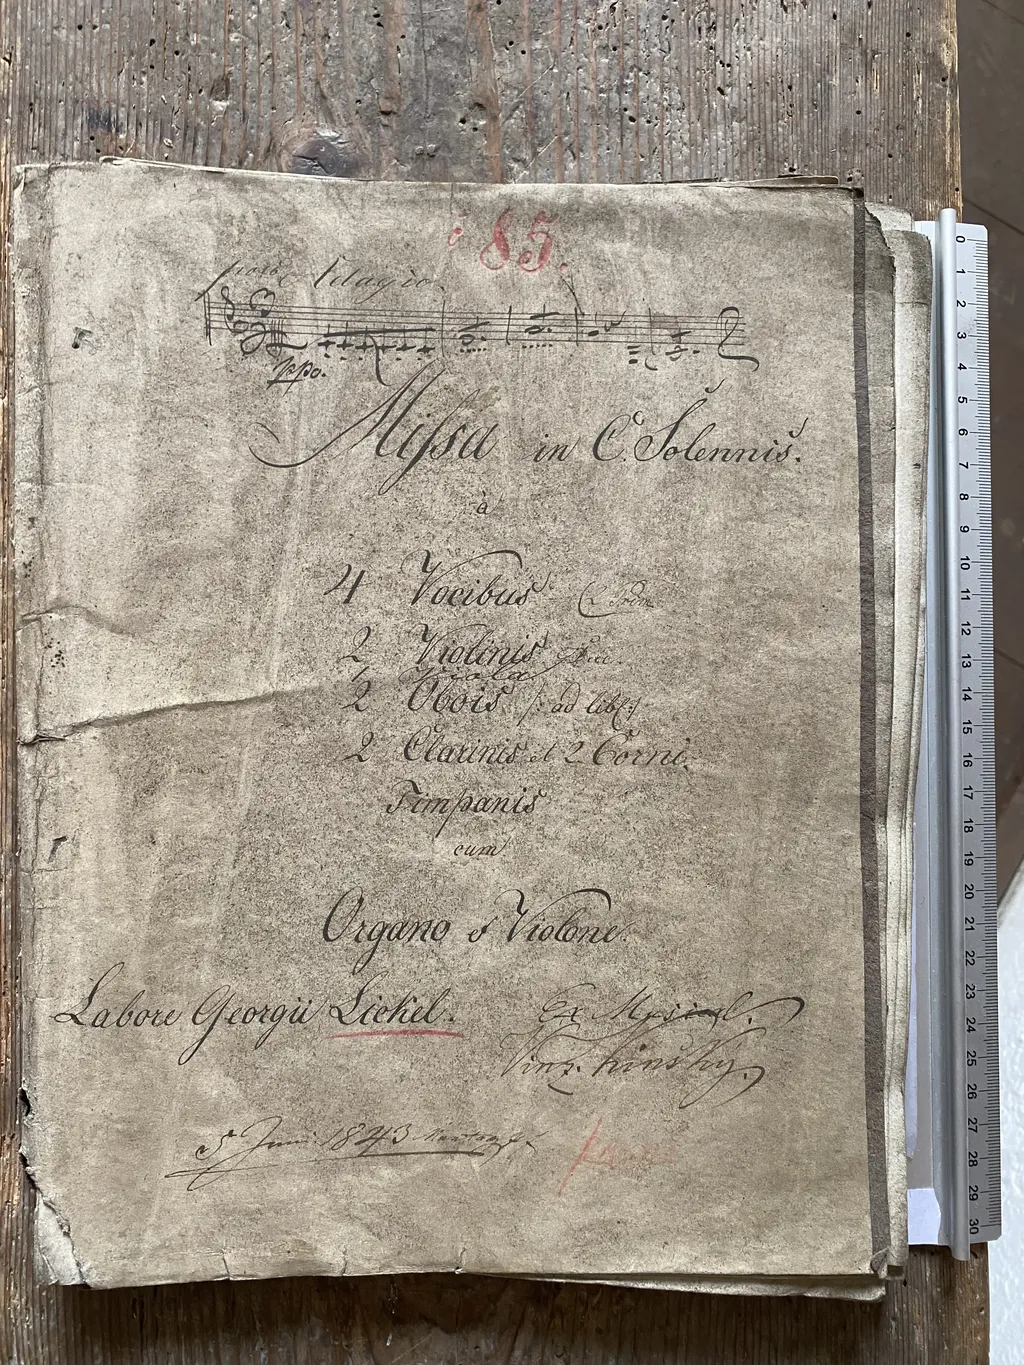 85.
Adagio.
ppo.
Missa in C. Solennis.
à
4 Vocibus
2 Violinis
Viola
2 Obois /: ad lib: /
2 Clarinis et 2 Corni.
Timpanis
cum
Organo e Violone.
Labore Georgii Lickel.
Ex Musical.
Vinz. Kinsky.
5 Juni 1843
0
1
2
3
4
5
6
7
8
9
10
11
12
13
14
15
16
17
18
19
20
21
22
23
24
25
26
27
28
29
30